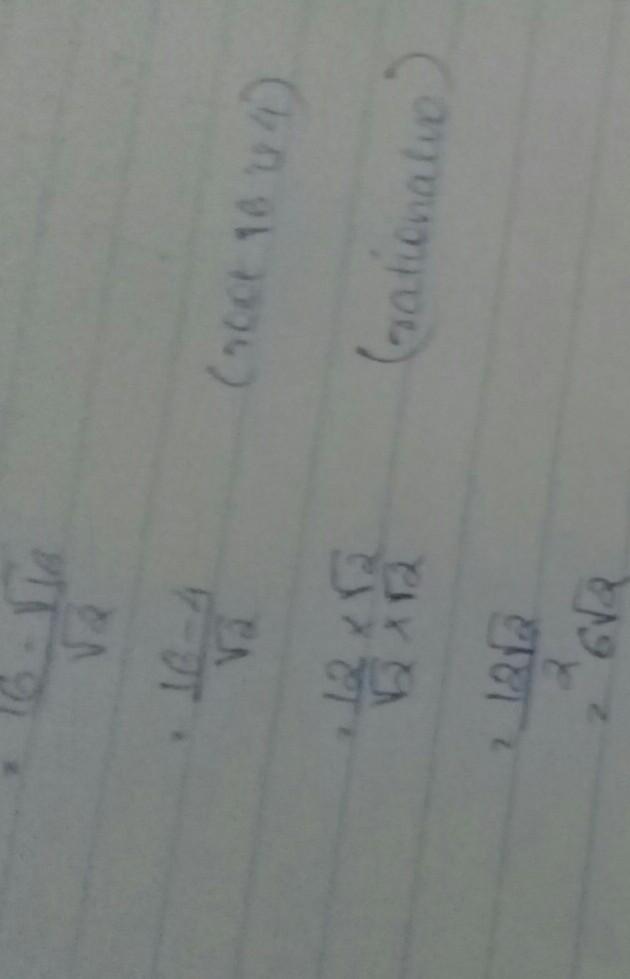 = 16 - √16 / √2
= 16 - 4 / √2 (root 16 is 4)
= 12 × √2 / √2 × √2 (rationalise)
= 12√2 / 2
= 6√2